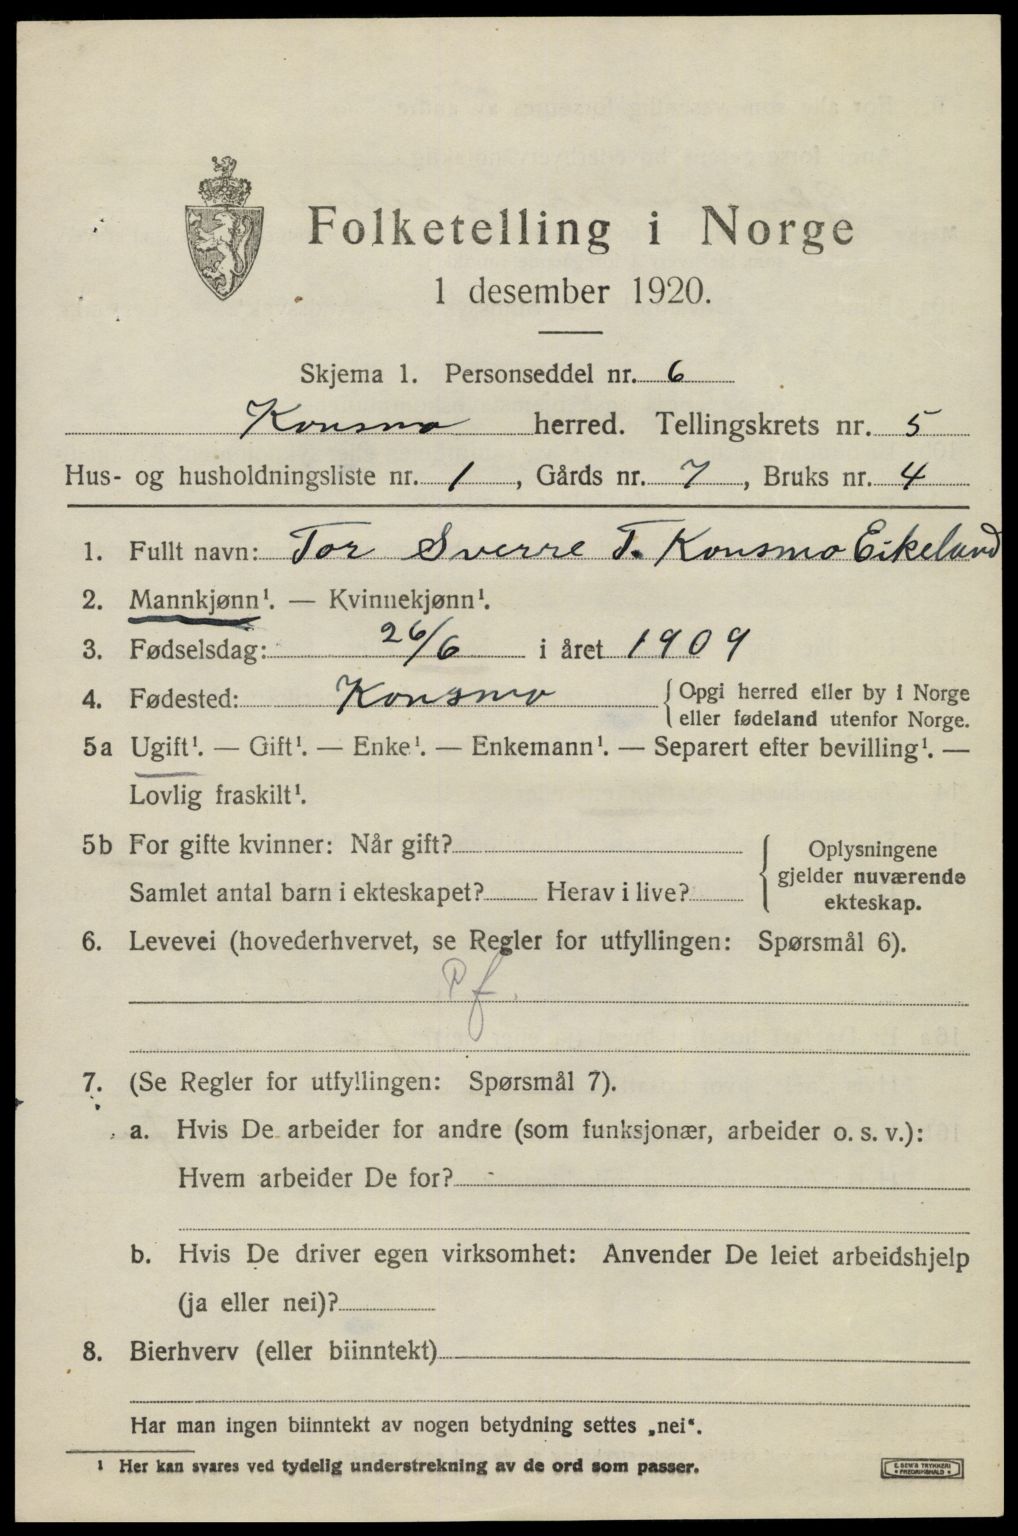 Folketelling i Norge
1 desember 1920.
Skjema 1. Personseddel nr. 6
Konsmo herred. Tellingskrets nr. 5
Hus- og husholdningsliste nr. 1, Gårds nr. 7, Bruks nr. 4
1. Fullt navn: Tor Sverre T. Konsmo Eikeland
2. Mannkjønn¹. — Kvinnekjønn¹.
3. Fødselsdag: 26/6 i året 1909
4. Fødested: Konsmo { Opgi herred eller by i Norge
eller fødeland utenfor Norge.
5a Ugift¹. — Gift¹. — Enke¹. — Enkemann¹. — Separert efter bevilling¹. —
Lovlig fraskilt¹.
5b For gifte kvinner: Når gift?
Samlet antal barn i ekteskapet? Herav i live?
{ Oplysningene
gjelder nuværende
ekteskap.
6. Levevei (hovederhvervet, se Regler for utfyllingen: Spørsmål 6).
Pf
7. (Se Regler for utfyllingen: Spørsmål 7).
a. Hvis De arbeider for andre (som funksjonær, arbeider o. s. v.):
Hvem arbeider De for? -
b. Hvis De driver egen virksomhet: Anvender De leiet arbeidshjelp
(ja eller nei)?
8. Bierhverv (eller biinntekt)
Har man ingen biinntekt av nogen betydning settes „nei“.
¹ Her kan svares ved tydelig understrekning av de ord som passer.
E. SEM'S TRYKKERI
• FREDRIKSHALD •